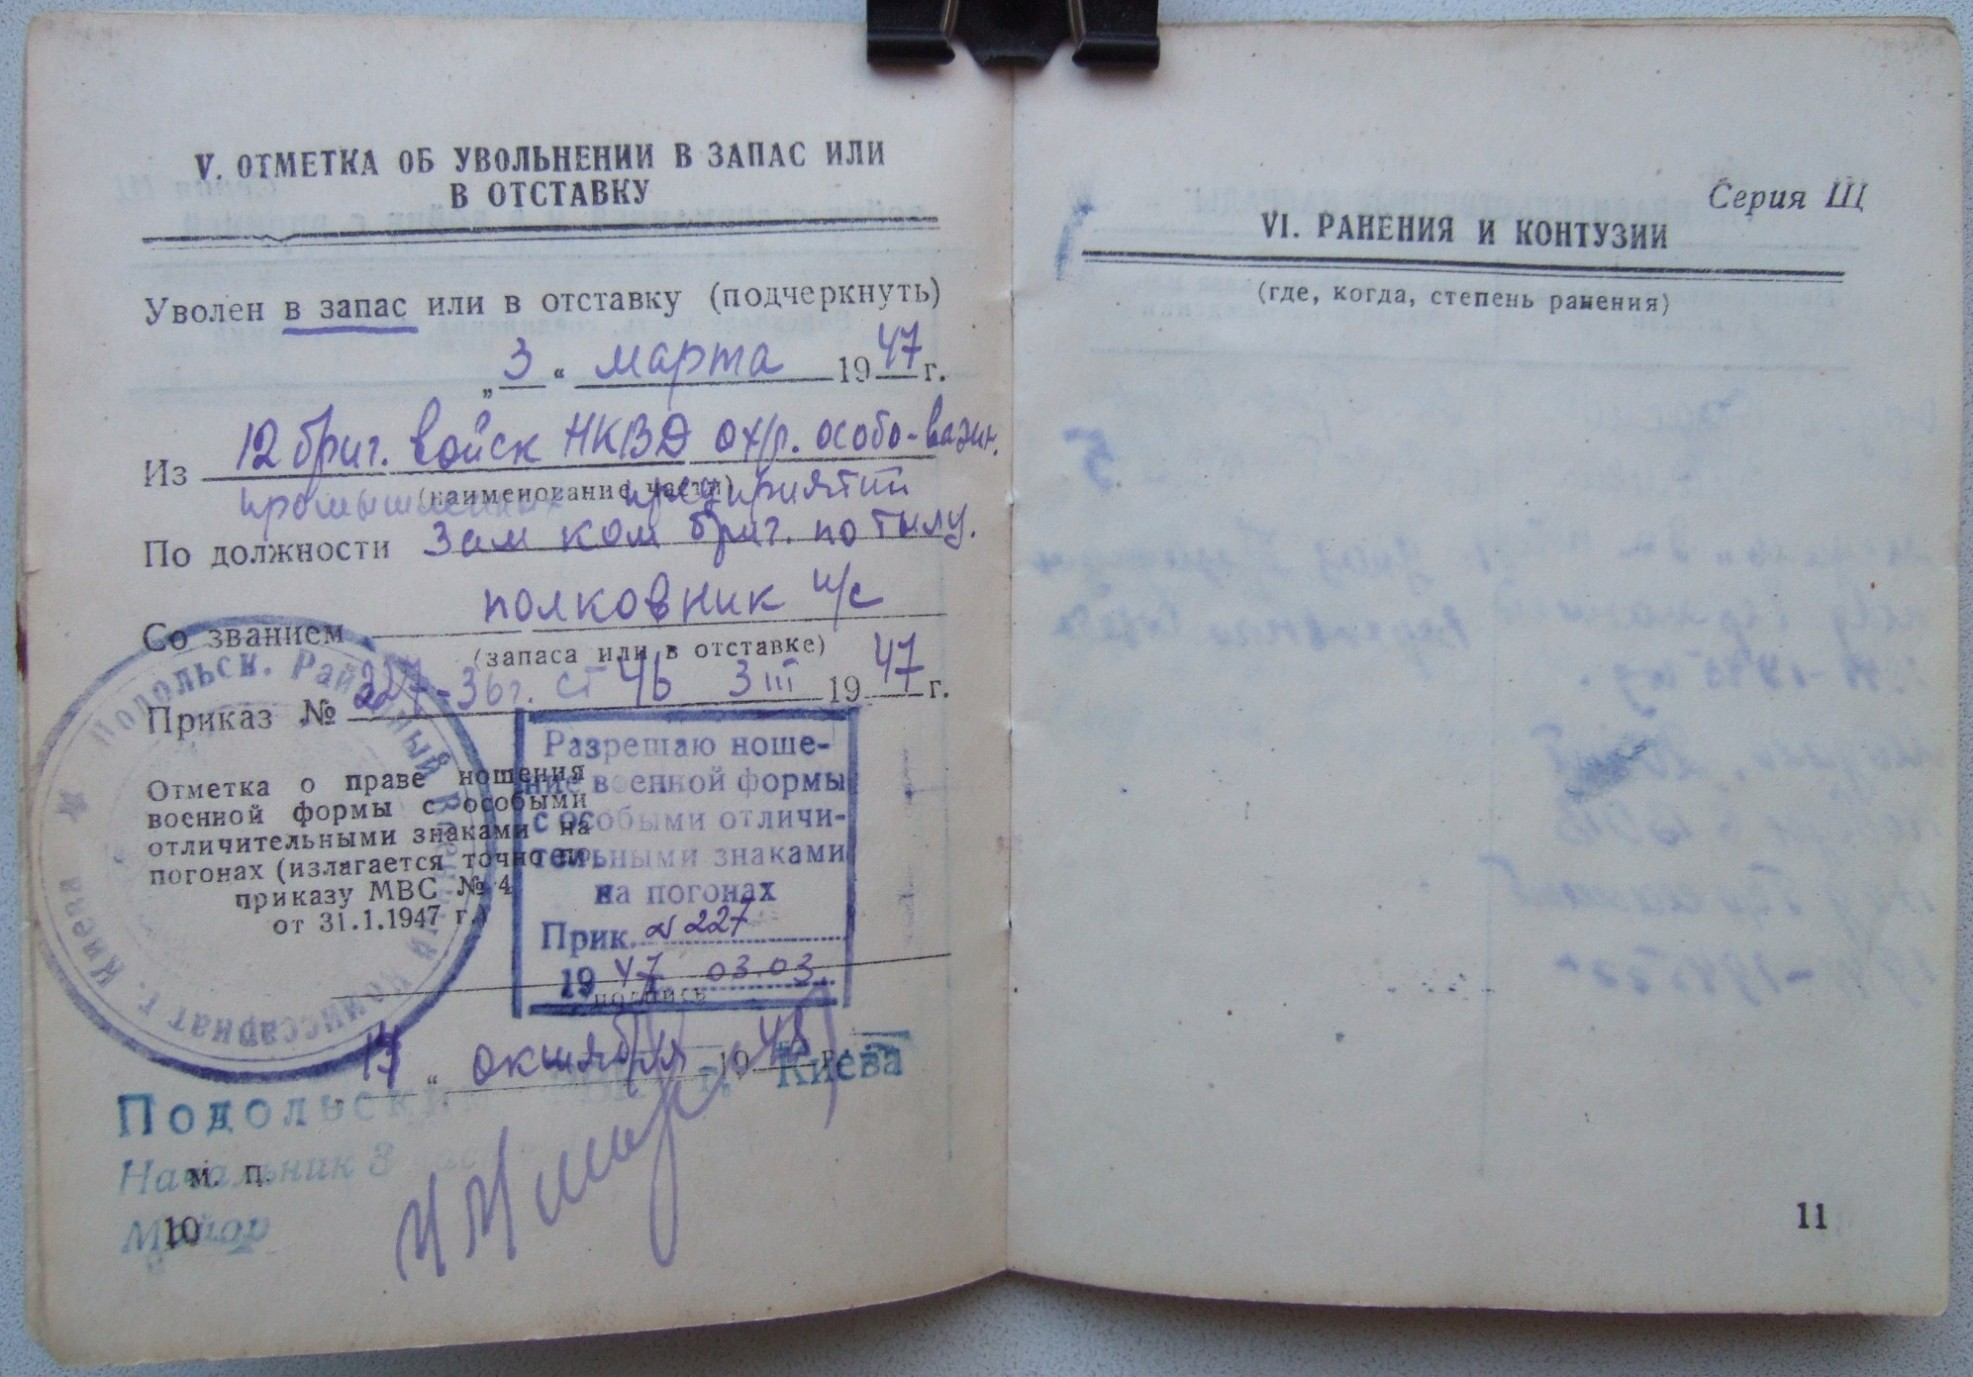 V. ОТМЕТКА ОБ УВОЛЬНЕНИИ В ЗАПАС ИЛИ
В ОТСТАВКУ
Уволен в запас или в отставку (подчеркнуть)
„3“ марта 1947 г.
Из 12 бриг. войск НКВД охр. особо-важн.
(наименование части)
промышленных предприятий
По должности Зам ком бриг. по тылу.
Со званием полковник и/с
(запаса или в отставке)
Приказ № 227-36г. ст 46 3 III 1947 г.
Отметка о праве ношения
военной формы с особыми
отличительными знаками на
погонах (излагается точно по
приказу МВС № 4
от 31.1.1947 г.)
Разрешаю ноше-
ние военной формы
с особыми отличи-
тельными знаками
на погонах
Прик. № 227
1947 03.03.
подпись
Подольск. Районный Военный Комиссариат г. Киева
“ октября 1948 г.
Подольский г. Киева
Начальник 3
Майор
м. п.
10
Серия Щ
VI. РАНЕНИЯ И КОНТУЗИИ
(где, когда, степень ранения)
11